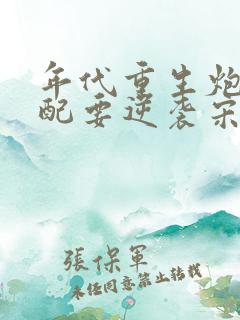 年代重生炮
配要逆袭宋
張保軍
未经同意禁止转载